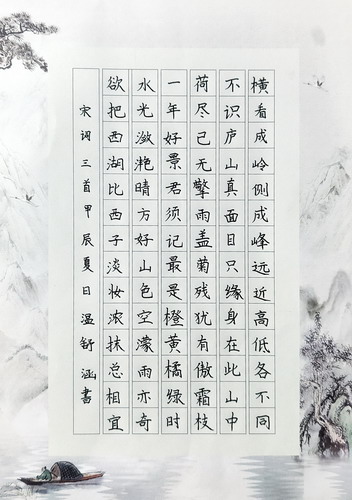 横看成岭侧成峰远近高低各不同
不识庐山真面目只缘身在此山中
荷尽已无擎雨盖菊残犹有傲霜枝
一年好景君须记最是橙黄橘绿时
水光潋滟晴方好山色空濛雨亦奇
欲把西湖比西子淡妆浓抹总相宜
宋词三首甲辰夏日温舒涵書